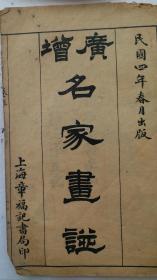 民國四年春月出版
增廣
名家畫譜
上海章福記書局印